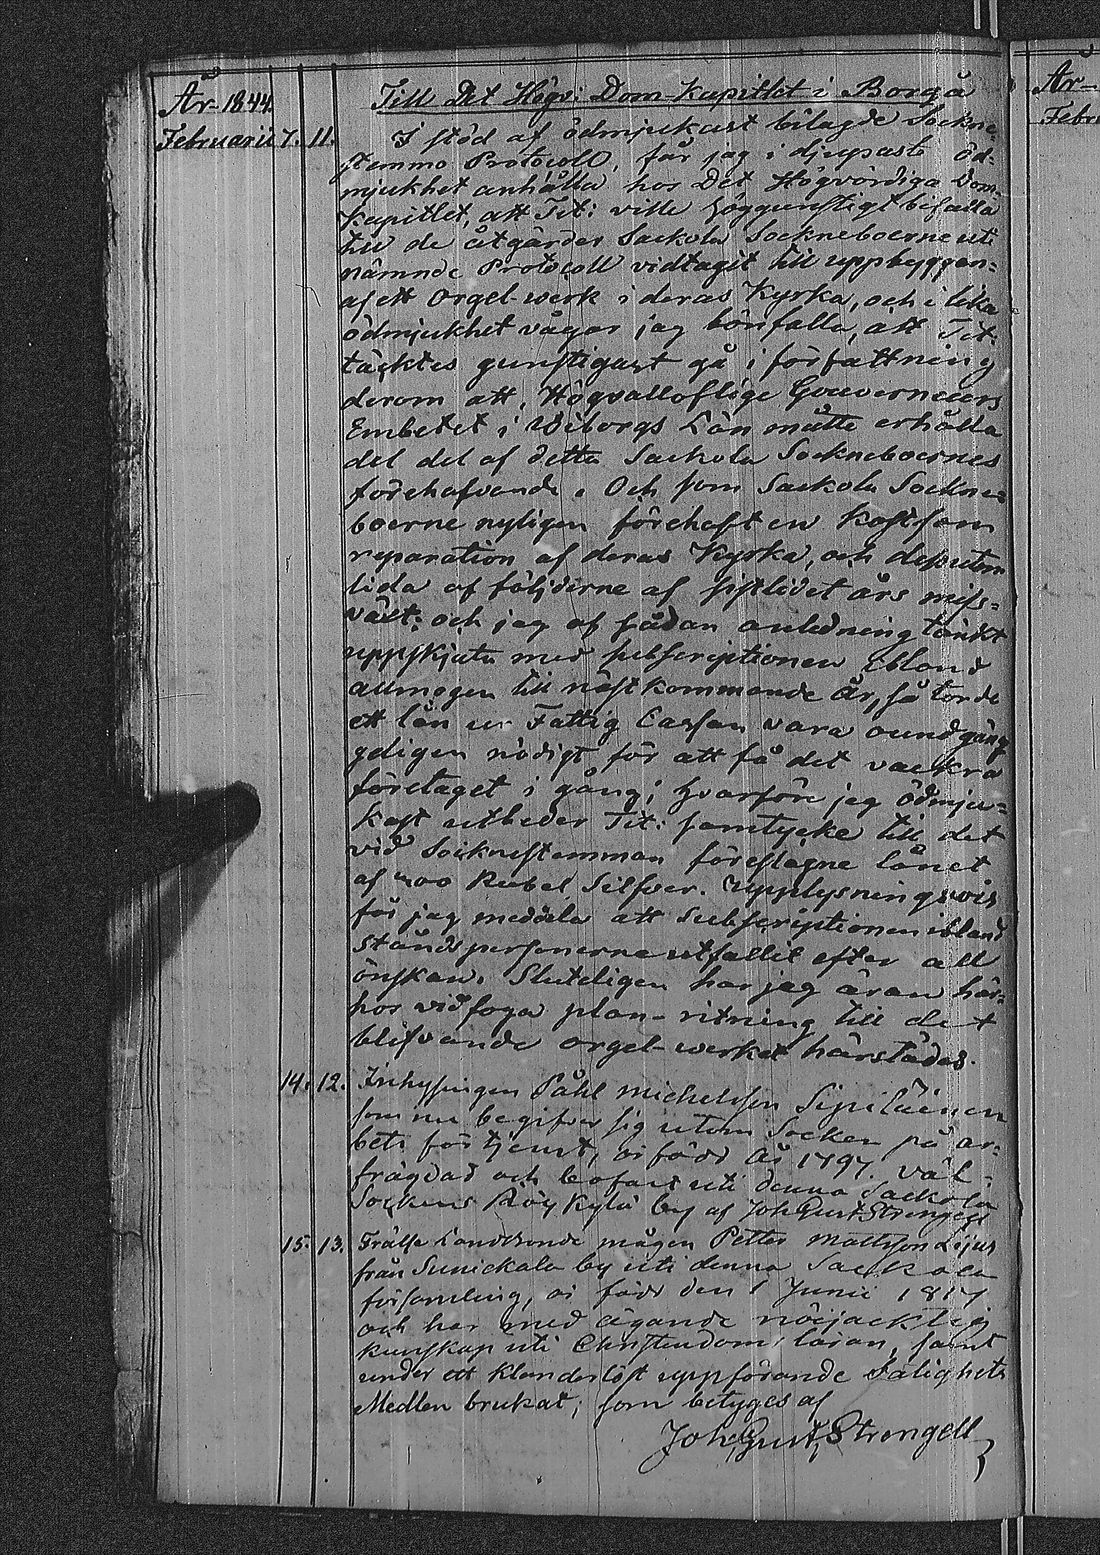 År 1844.
Februarii 7. 11.
Till Det Högv: Dom-Kapitlet i Borgå
I stöd af ödmjukast bilagde Sockne
Stemmo Protocoll, får jag i djupaste öd-
mjukhet anhålla hos Det Högvördiga Dom-
Kapitlet, att Tit: ville höggunstigt bifalla
till de åtgärder Sackola Sockneboerne uti
nämnde Protocoll vidtagit till uppbyggan-
af ett Orgel-werk i deras Kyrka, och i lika
ödmjukhet vågar jag bönfalla, att Tit:
täcktes gunstigast gå i författning
derom att, Högvällofliga Gouverneurs
Embetet i Wiborgs Län måtte erhålla
del af detta Sackola Sockneboernes
förehafvande. Och som Sackola Sockne
boerne nyligen förehaft en kostsam
reparation af deras Kyrka, och dessutom
lida af följderne af sistlidet års miss-
växt; och jag af sådan anledning tänkt
uppskjuta med subscriptionen ibland
allmogen till nästkommande år, så torde
ett lån ur Fattig Cassan vara oundgäng
geligen nödigt för att få det vackra
företaget i gång; hvarföre jag ödmju-
kast utbeder Tit: samtycke till det
vid Sockenstemman föreslagne lånet
af 400 Rubel Silfver. Upplysningsvis
får jag meddela att Subscriptionen ibland
Ståndspersonerne utfallit efter all
önskan. Sluteligen har jag äran här-
hos vidfoga plan-ritning till det
blifvande orgel-werket härstädes.
14. 12. Inhysingen Påhl Michelsson Sipiläinen
som nu begifver sig utom Socken på ar-
bets förtjenst, är född år 1797. väl-
frägdad och bofast uti denna Sackola
Sockens Röykylä by af Joh Gust Strengell
15. 13. Frälse Landbonde mågen Petter Mattsson Lijus
från Sunickala by uti denna Sackola
församling, är född den 1 Junii 1817
och har med ägande nöijacktig
kunskap uti Christendoms läran, samt
under ett klanderlöst uppförande Salighets
Medlen brukat; som betyges af
Joh Gust Strengell
År
Febru